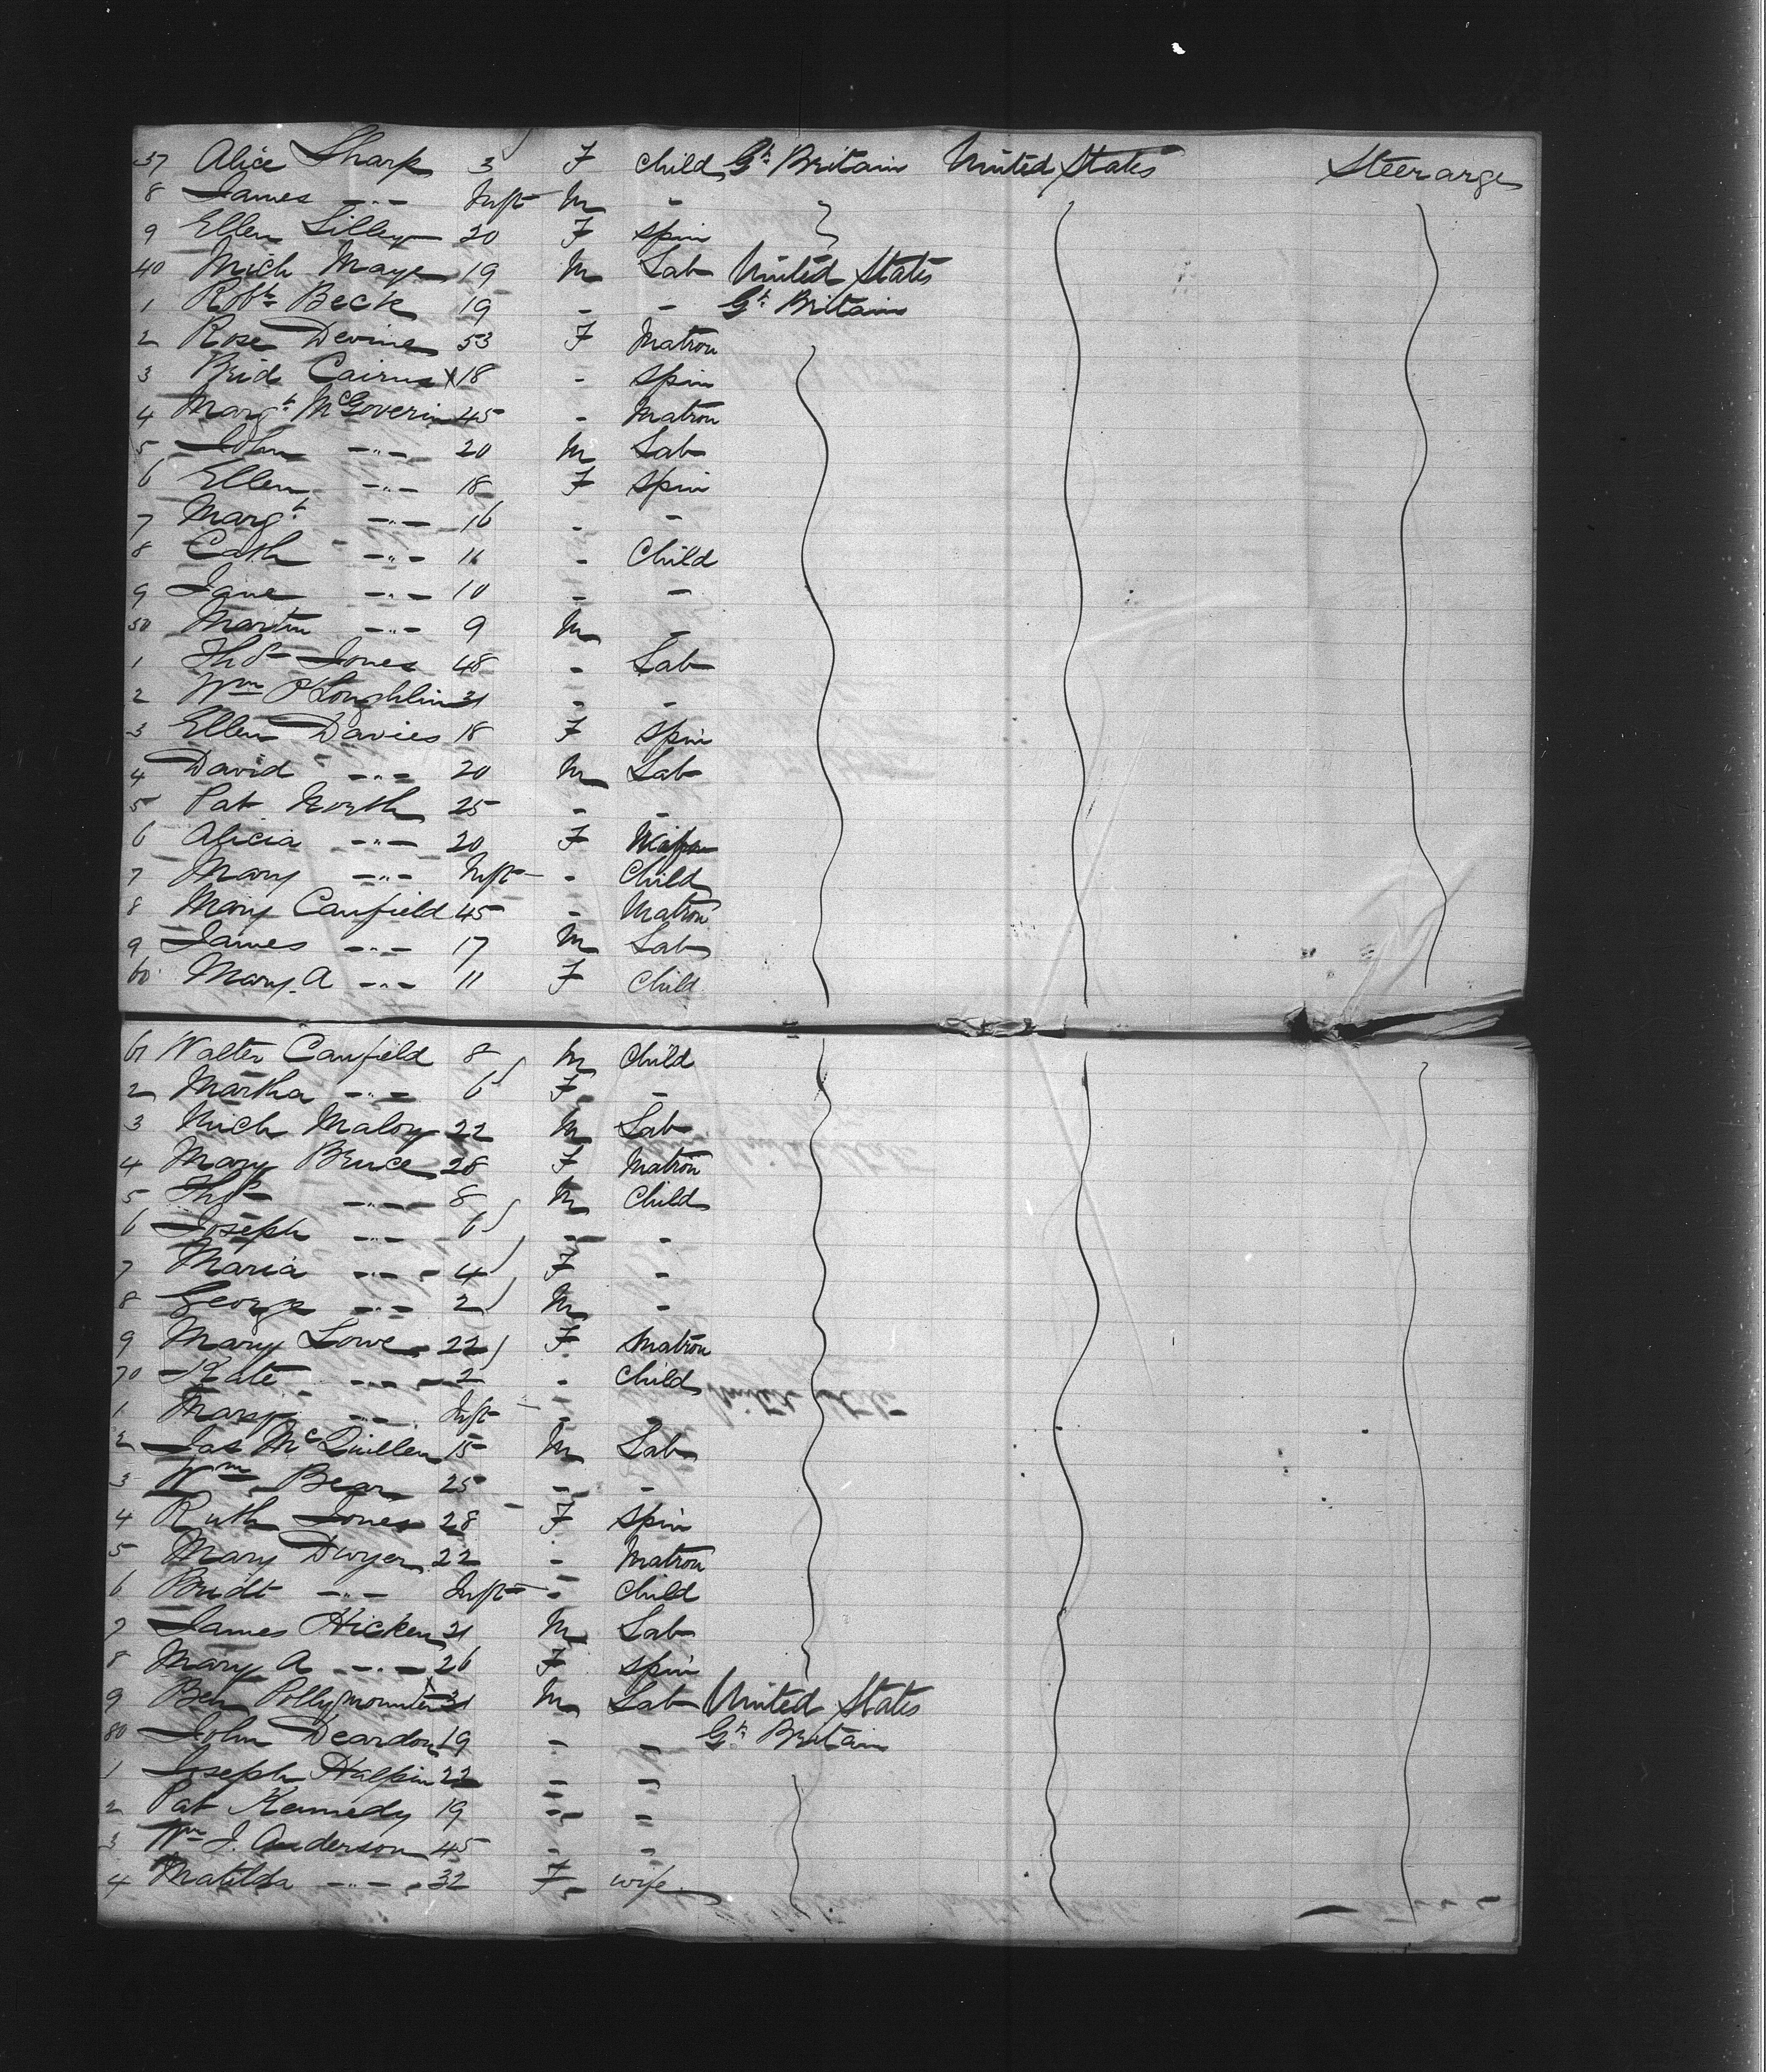 37 Alice Sharp 3 F Child Gt Britain United States Steerage
8 James -"- Inft M -
9 Ellen Lilley 20 F Spin
40 Mich Maye 19 M Lab United States
1 Robt Beck 19 - - Gt Britain
2 Rose Devine 53 F Matron
3 Brid Cairns X 18 - Spin
4 Margt McGoverin 45 - Matron
5 John -"- 20 M Lab
6 Ellen -"- 18 F Spin
7 Margt -"- 16 - -
8 Cath -"- 11 - Child
9 Jane -"- 10 - -
50 Martin -"- 9 M -
1 Thos Jones 48 - Lab
2 Wm O'Loughlin 31 - -
3 Ellen Davies 18 F Spin
4 David -"- 20 M Lab
5 Pat North 25 - -
6 Alicia -"- 20 F Wife
7 Mary -"- Inft - Child
8 Mary Caufield 45 - Matron
9 James -"- 17 M Lab
60 Mary A -"- 11 F Child
61 Walter Caufield 8 M Child
2 Martha -"- 6 F -
3 Mich Maloy 22 M Lab
4 Mary Bruce 28 F Matron
5 Thos -"- 8 M Child
6 Joseph -"- 6 - -
7 Maria -"- 4 F -
8 George -"- 2 M -
9 Mary Lowe 22 F Matron
70 Kate -"- 2 - Child
1 Mary -"- Inft - -
2 Jas McQuillen 15 M Lab
3 Wm Bear 25 - -
4 Ruth Jones 28 F Spin
5 Mary Dwyer 22 - Matron
6 Bridt -"- Inft - Child
7 James Hicken 21 M Lab
8 Mary A -"- 26 F Spin
9 Ben Pollymounter 31 M Lab United States
80 John Deardon 19 - - Gt Britain
1 Joseph Halpin 22 - -
2 Pat Kennedy 19 - -
3 Wm J. Anderson 45 - -
4 Matilda -"- 32 F wife